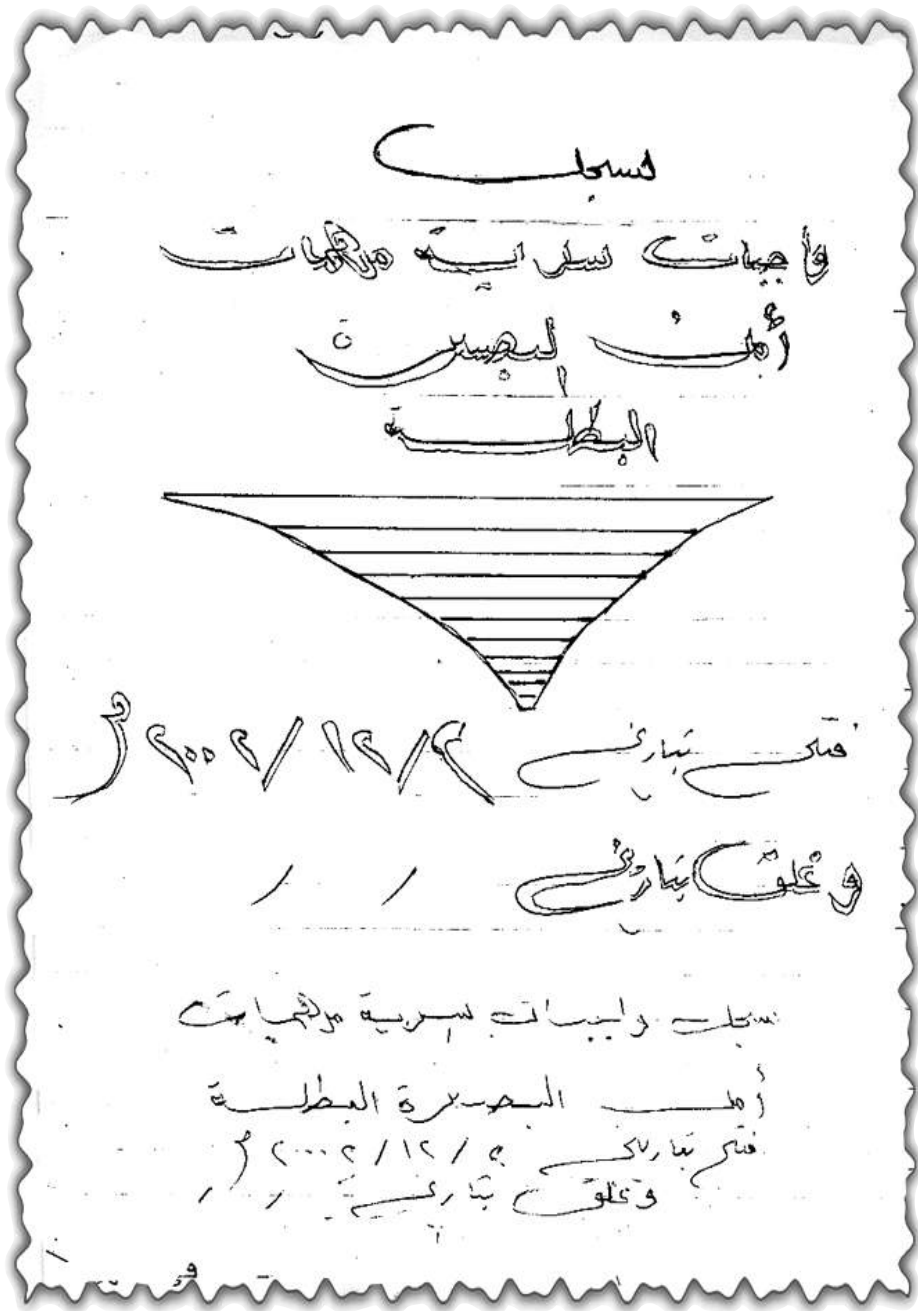 سجل
واجبات سرية مهمات
أمن البصرة
البطلة
فتح بتاريخ ٢/١٢/٢٠٠٢ م
وغلق بتاريخ / /
سجل واجبات سرية مهمات
أمن البصرة البطلة
فتح بتاريخ / ١٢ / ٢٠٠٢ م
وغلق بتاريخ / /